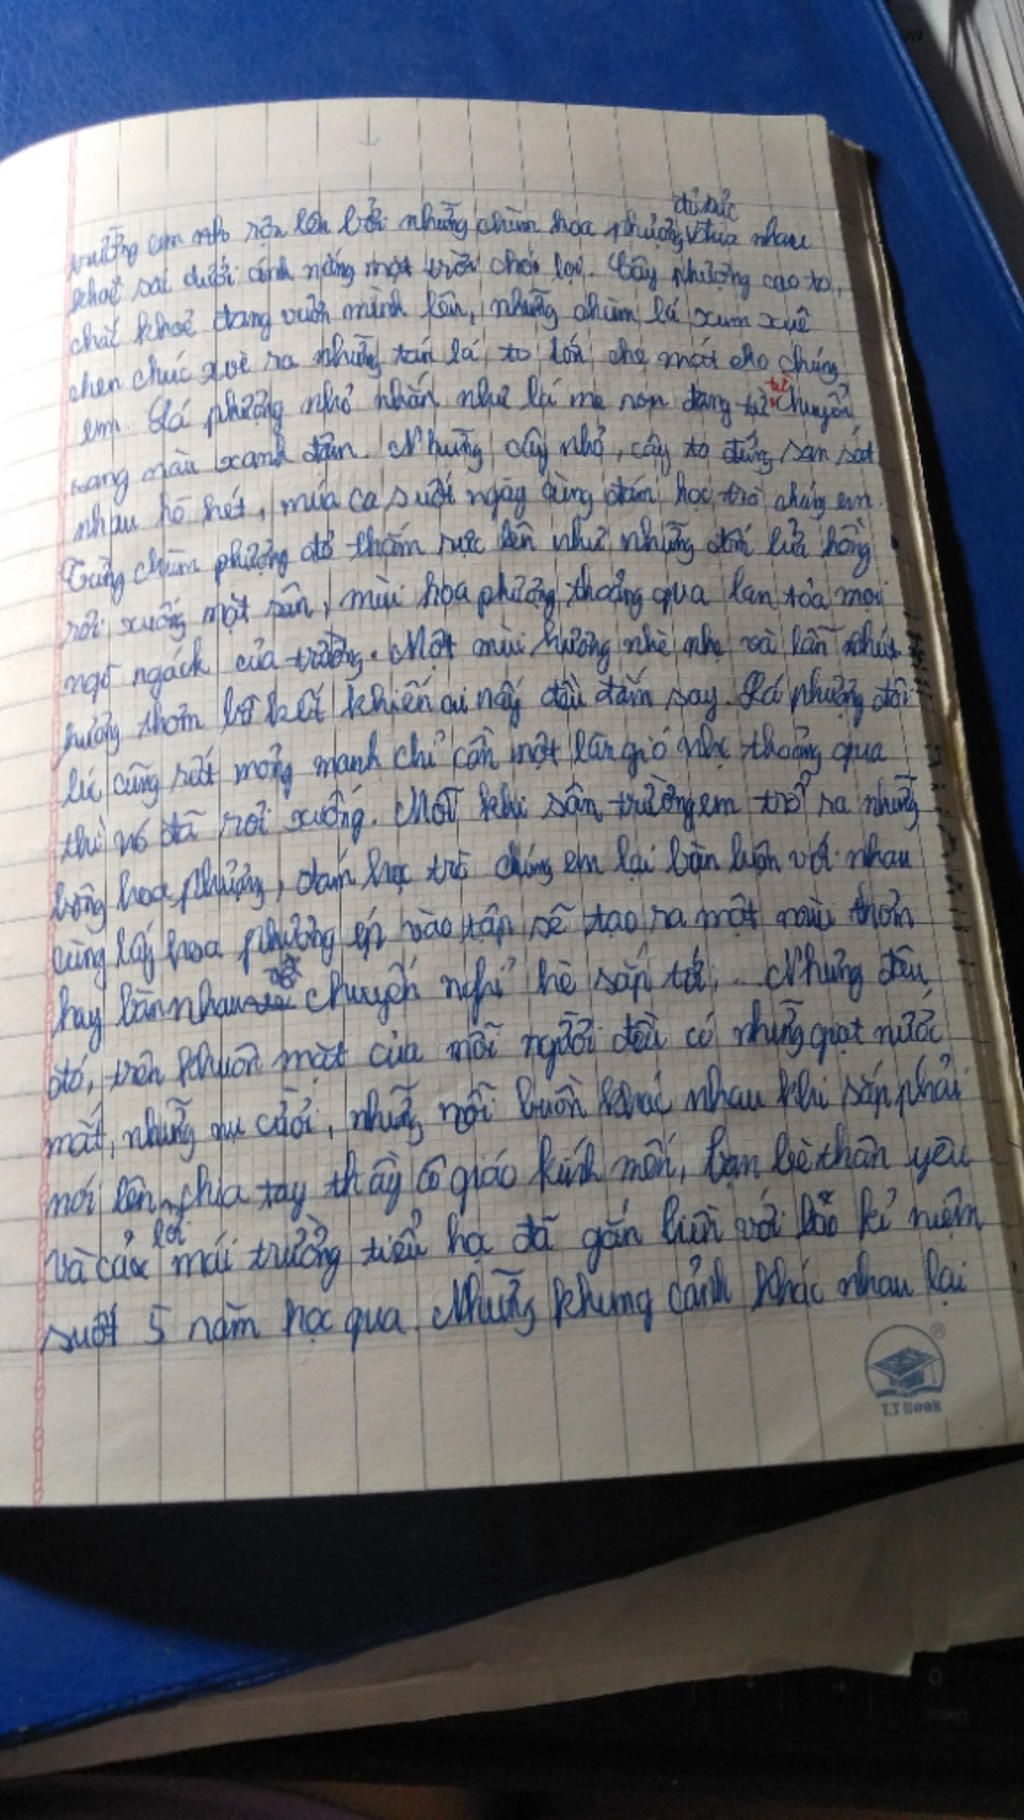 đủ sức
trường em như rộn lên bởi những chùm hoa phượng đua nhau
khoe sắc dưới ánh nắng mặt trời chói lọi. Cây phượng cao to,
chắc khoẻ đang vươn mình lên, những chùm lá xum xuê
chen chúc xoè ra những tán lá to lớn che mát cho chúng
em. Lá phượng nhỏ nhắn như lá me non đang từ từ chuyển
sang màu xanh đậm. Những cây nhỏ, cây to đứng san sát
nhau hò hét, múa ca suốt ngày cùng đám học trò chúng em.
Từng chùm phượng đỏ thắm rực lên như những đốm lửa hồng
rơi xuống mặt sân, mùi hoa phượng thoảng qua lan tỏa mọi
ngõ ngách của trường. Một mùi hương nhè nhẹ và lẫn chút
hương thơm khiến ai nấy đều đắm say. Lá phượng đôi
lúc cũng rất mỏng manh chỉ cần một làn gió nhẹ thoảng qua
thì nó đã rơi xuống. Mỗi khi sân trường em trổ ra những
bông hoa phượng, đám học trò chúng em lại bàn luận với nhau
cùng lấy hoa phượng ép vào tập sẽ tạo ra một mùi thơm
hay bàn nhau về chuyến nghỉ hè sắp tới,... Nhưng đâu
đó, trên khuôn mặt của mỗi người đều có những giọt nước
mắt, những nụ cười, những nỗi buồn khác nhau khi sắp phải
nói lên lời chia tay thầy cô giáo kính mến, bạn bè thân yêu
và cả mái trường tiểu học đã gắn liền với bao kỉ niệm
suốt 5 năm học qua. Những khung cảnh khác nhau lại
T.T BOOK
insert